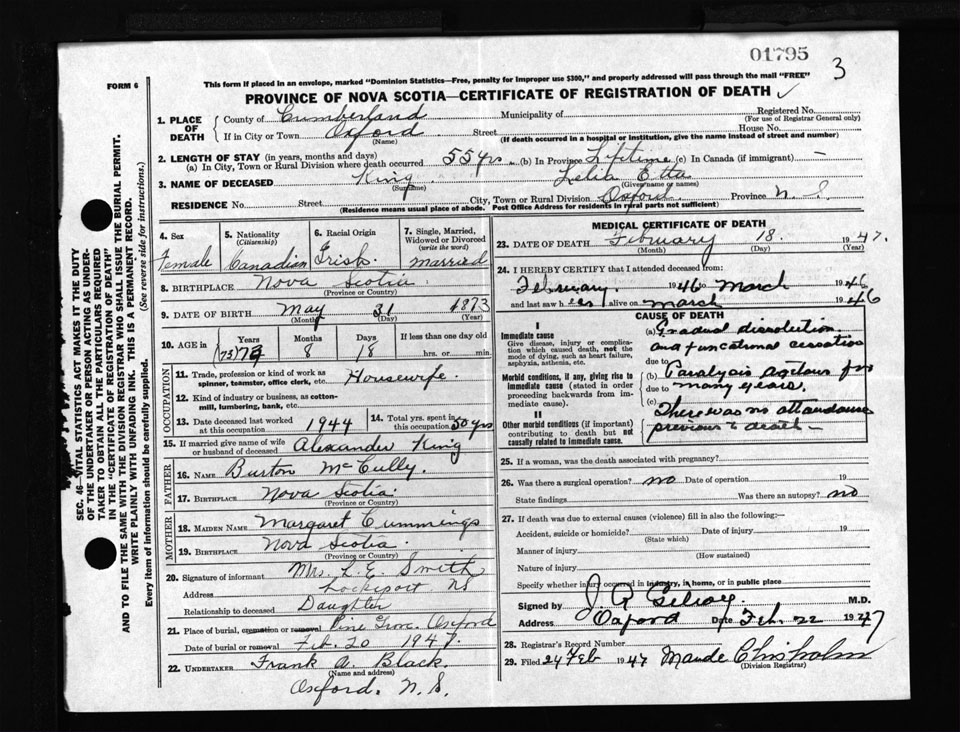 01795
3
FORM 6
This form if placed in an envelope, marked "Dominion Statistics—Free, penalty for improper use $300," and properly addressed will pass through the mail "FREE"
PROVINCE OF NOVA SCOTIA—CERTIFICATE OF REGISTRATION OF DEATH ✓
1. PLACE OF DEATH
County of Cumberland Municipality of Registered No.
(For use of Registrar General only)
If in City or Town Oxford Street House No.
(Name) (If death occurred in a hospital or institution, give the name instead of street and number)
2. LENGTH OF STAY (in years, months and days)
(a) In City, Town or Rural Division where death occurred 55 yrs. (b) In Province Lifetime (c) In Canada (if immigrant) —
3. NAME OF DECEASED King Lelia Etta
(Surname) (Given name or names)
RESIDENCE No. Street City, Town or Rural Division Oxford Province N.S.
(Residence means usual place of abode. Post Office Address for residents in rural parts not sufficient)
SEC. 46—VITAL STATISTICS ACT MAKES IT THE DUTY
OF THE UNDERTAKER OR PERSON ACTING AS UNDER-
TAKER TO OBTAIN ALL THE PARTICULARS REQUIRED
IN THE "CERTIFICATE OF REGISTRATION OF DEATH"
AND TO FILE THE SAME WITH THE DIVISION REGISTRAR WHO SHALL ISSUE THE BURIAL PERMIT.
WRITE PLAINLY WITH UNFADING INK. THIS IS A PERMANENT RECORD.
Every item of information should be carefully supplied. (See reverse side for instructions.)
4. Sex
Female
5. Nationality
(Citizenship)
Canadian
6. Racial Origin
Irish
7. Single, Married,
Widowed or Divorced
(write the word)
Married
8. BIRTHPLACE Nova Scotia
(Province or Country)
9. DATE OF BIRTH May 31 1873
(Month) (Day) (Year)
10. AGE in Years Months Days If less than one day old
(73) 8 18 hrs. or min.
OCCUPATION
11. Trade, profession or kind of work as
spinner, teamster, office clerk, etc. Housewife.
12. Kind of industry or business, as cotton-
mill, lumbering, bank, etc.
13. Date deceased last worked
at this occupation 1944
14. Total yrs. spent in
this occupation 50 yrs
15. If married give name of wife
or husband of deceased Alexander King
FATHER
16. NAME Burton McCully.
17. BIRTHPLACE Nova Scotia
(Province or Country)
MOTHER
18. MAIDEN NAME Margaret Cummings
19. BIRTHPLACE Nova Scotia.
(Province or Country)
20. Signature of informant Mrs. L. E. Smith
Address Lockeport NS
Relationship to deceased Daughter
21. Place of burial, cremation or removal Pine Grove Oxford
Date of burial or removal Feb. 20 1947.
22. UNDERTAKER Frank A. Black.
(Name and address)
Oxford. N.S.
MEDICAL CERTIFICATE OF DEATH
23. DATE OF DEATH February 18. 1947.
(Month) (Day) (Year)
24. I HEREBY CERTIFY that I attended deceased from:
February. 1946 to March 1946
and last saw her alive on March 1946
CAUSE OF DEATH
I
Immediate cause
Give disease, injury or complica-
tion which caused death, not the
mode of dying, such as heart failure,
asphyxia, asthenia, etc.
(a) Gradual dissolution
and functional cessation
due to
Morbid conditions, if any, giving rise to
immediate cause (stated in order
proceeding backwards from im-
mediate cause).
(b) Paralysis agitans for
due to many years.
(c)
II
Other morbid conditions (if important)
contributing to death but not
causally related to immediate cause.
There was no attendance
previous to death —
25. If a woman, was the death associated with pregnancy?
26. Was there a surgical operation? no Date of operation 19
State findings Was there an autopsy? no
27. If death was due to external causes (violence) fill in also the following:—
Accident, suicide or homicide? Date of injury 19
(State which)
Manner of injury
(How sustained)
Nature of injury
Specify whether injury occurred in industry, in home, or in public place
Signed by J. R. Gilroy. M.D.
Address Oxford Date Feb. 22 1947
28. Registrar's Record Number
29. Filed 24 Feb 1947 Maude Chisholm
(Division Registrar)